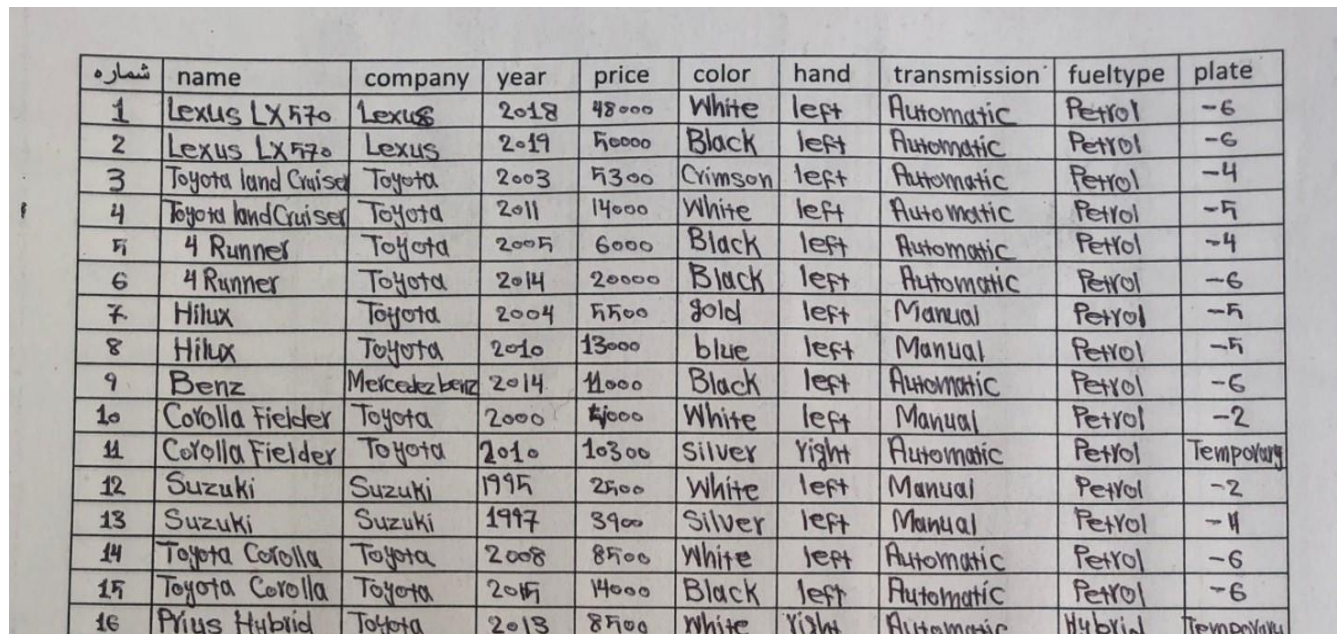 شماره name company year price color hand transmission fueltype plate
1 Lexus LX 570 Lexus 2018 48000 White left Automatic Petrol -6
2 Lexus LX 570 Lexus 2019 50000 Black left Automatic Petrol -6
3 Toyota land Cruiser Toyota 2003 5300 Crimson left Automatic Petrol -4
4 Toyota land Cruiser Toyota 2011 14000 White left Automatic Petrol -5
5 4 Runner Toyota 2005 6000 Black left Automatic Petrol -4
6 4 Runner Toyota 2014 20000 Black left Automatic Petrol -6
7 Hilux Toyota 2004 5500 gold left Manual Petrol -5
8 Hilux Toyota 2010 13000 blue left Manual Petrol -5
9 Benz Mercedez benz 2014 11000 Black left Automatic Petrol -6
10 Corolla Fielder Toyota 2000 White left Manual Petrol -2
11 Corolla Fielder Toyota 2010 10300 Silver right Automatic Petrol Temporary
12 Suzuki Suzuki 1995 2500 White left Manual Petrol -2
13 Suzuki Suzuki 1997 3900 Silver left Manual Petrol
14 Toyota Corolla Toyota 2008 8500 White left Automatic Petrol -6
15 Toyota Corolla Toyota 2015 14000 Black left Automatic Petrol -6
16 Prius Hybrid Toyota 2013 8500 White right Automatic Hybrid Temporary